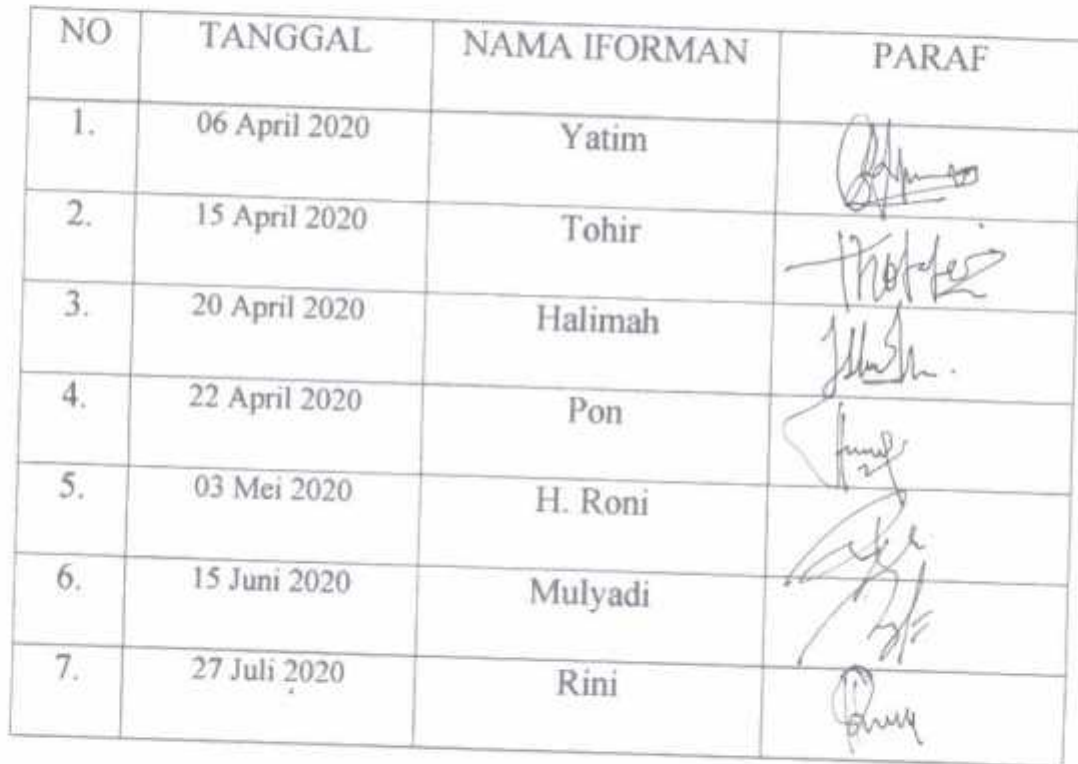 NO TANGGAL NAMA IFORMAN PARAF
1. 06 April 2020 Yatim
2. 15 April 2020 Tohir
3. 20 April 2020 Halimah
4. 22 April 2020 Pon
5. 03 Mei 2020 H. Roni
6. 15 Juni 2020 Mulyadi
7. 27 Juli 2020 Rini